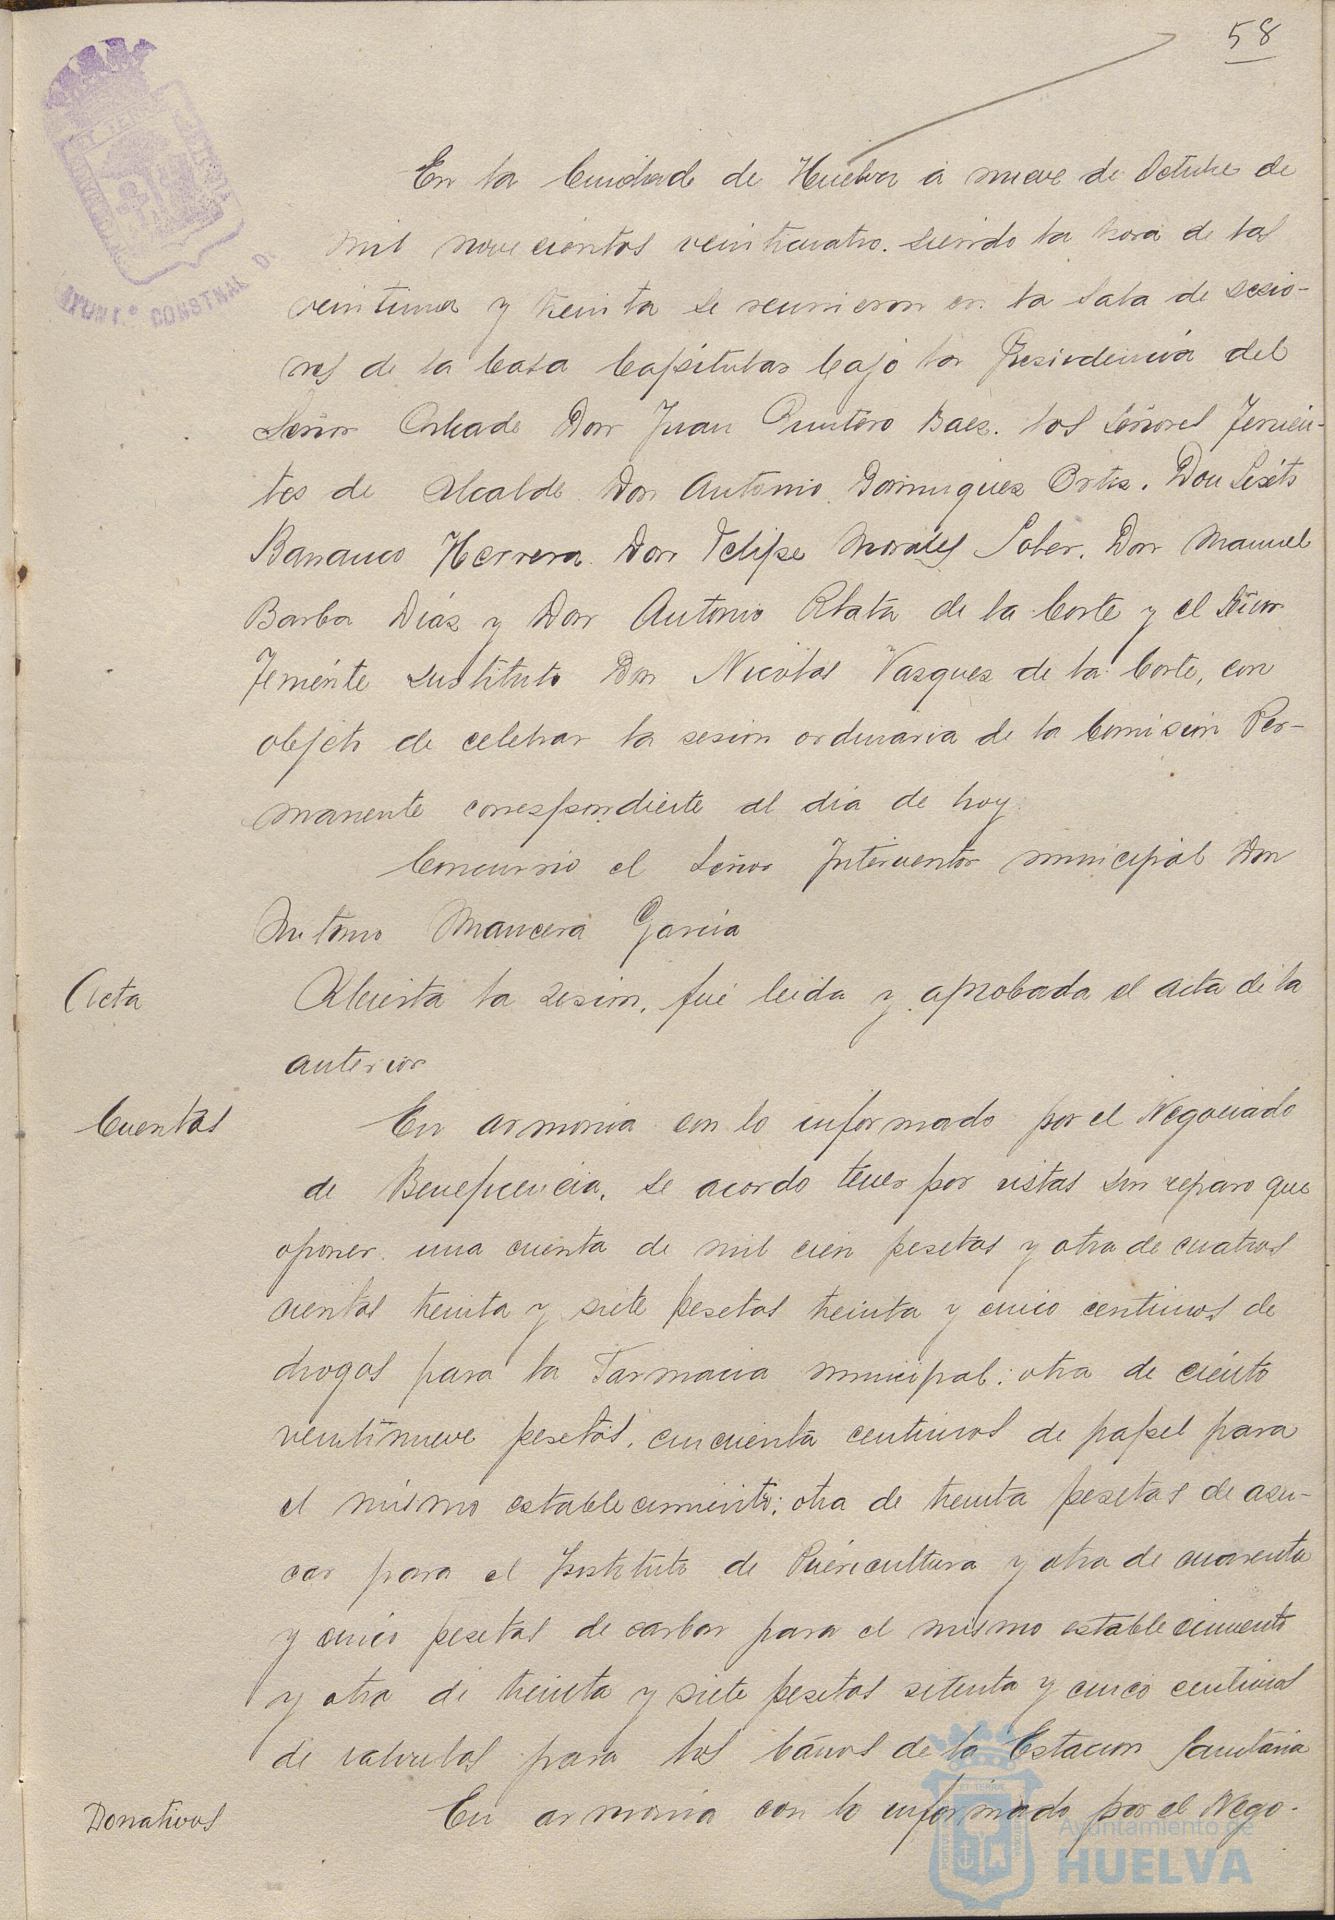 58
En la Ciudad de Huelva a nueve de Octubre de
mil novecientos veinticuatro. siendo la hora de las
veintiuna y treinta se reunieron en la Sala de sesio-
nes de la Casa Capitular bajo la Presidencia del
Señor Alcalde Don Juan Quintero Baez. los Señores Tenien-
tes de Alcalde Don Antonio Dominguez Ortiz. Don Sixto
Barranco Herrera. Don Felipe Morales Soler. Don Manuel
Barba Diáz y Don Antonio Plata de la Corte y el Señor
Teniente sustituto Don Nicolas Vazquez de la Corte, con
objeto de celebrar la sesion ordinaria de la Comision Per-
manente correspondiente al dia de hoy.
Concurrio el Señor Interventor municipal Don
Antonio Mancera Garcia
Acta
Abierta la sesion, fué leida y aprobada el acta de la
anterior
Cuentas
En armonia con lo informado por el Negociado
de Beneficencia, se acordo tener por vistas sin reparo que
oponer. una cuenta de mil cien pesetas y otra de cuatros
cientas treinta y siete pesetas treinta y cinco centimos de
drogas para la Farmacia municipal: otra de ciento
veintinueve pesetas. cincuenta centimos de papel para
el mismo establecimiento; otra de treinta pesetas de azu-
car para el Instituto de Puericultura y otra de cuarenta
y cinco pesetas de carbon para el mismo establecimiento
y otra de treinta y siete pesetas setenta y cinco centimos
de valvulas para los baños de la Estacion Sanitaria
Donativos
En armonia con lo informado por el Nego-
AYUNT.º CONSTNAL DE
Ayuntamiento de
HUELVA